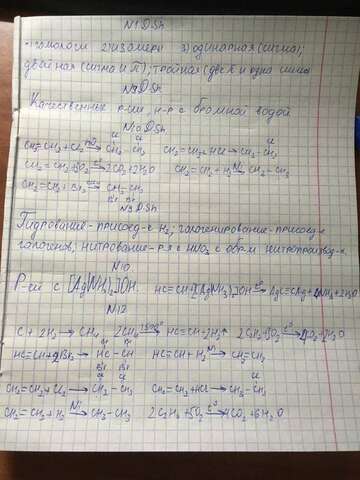 N1 DSh
1) гомологи 2) изомеры 3) одинарная (сигма);
двойная (сигма и П), тройная (две π и одна сигма)
N9 DSh
Качественные р-ции, н-р с бромной водой
N10 DSh
Cl Cl
CH2=CH2 + Cl2 → CH2-CH3 CH2=CH2 + HCl → CH2-CH3
C2H4 + 3O2 → 2CO2 + 2H2O CH2=CH2 + H2 Ni → CH3-CH3
CH2=CH2 + Br2 → CH2-CH2
Br Br
N9 DSh
Гидрирование - присоед-е H2; галогенирование - присоед-е
галогенов, нитрование - р-я с HNO3 с обр-м нитропроизвод-х.
N10
Р-ции с [Ag(NH3)2]OH. HC≡CH + 2[Ag(NH3)2]OH t° → AgC≡CAg + 4NH3 + 2H2O
N12
C + 2H2 → CH4 2CH4 1500° → HC≡CH + 3H2↑ 2C2H2 + 5O2 t° → 4CO2 + 2H2O
Br Br
HC≡CH + 2Br2 → HC-CH HC≡CH + H2 Ni → CH2=CH2
Br Br
Cl Cl Cl
CH2=CH2 + Cl2 → CH2-CH2 CH2=CH2 + HCl → CH3-CH2
CH2=CH2 + H2 Ni → CH3-CH3 2C2H6 + 7O2 t° → 4CO2 + 6H2O